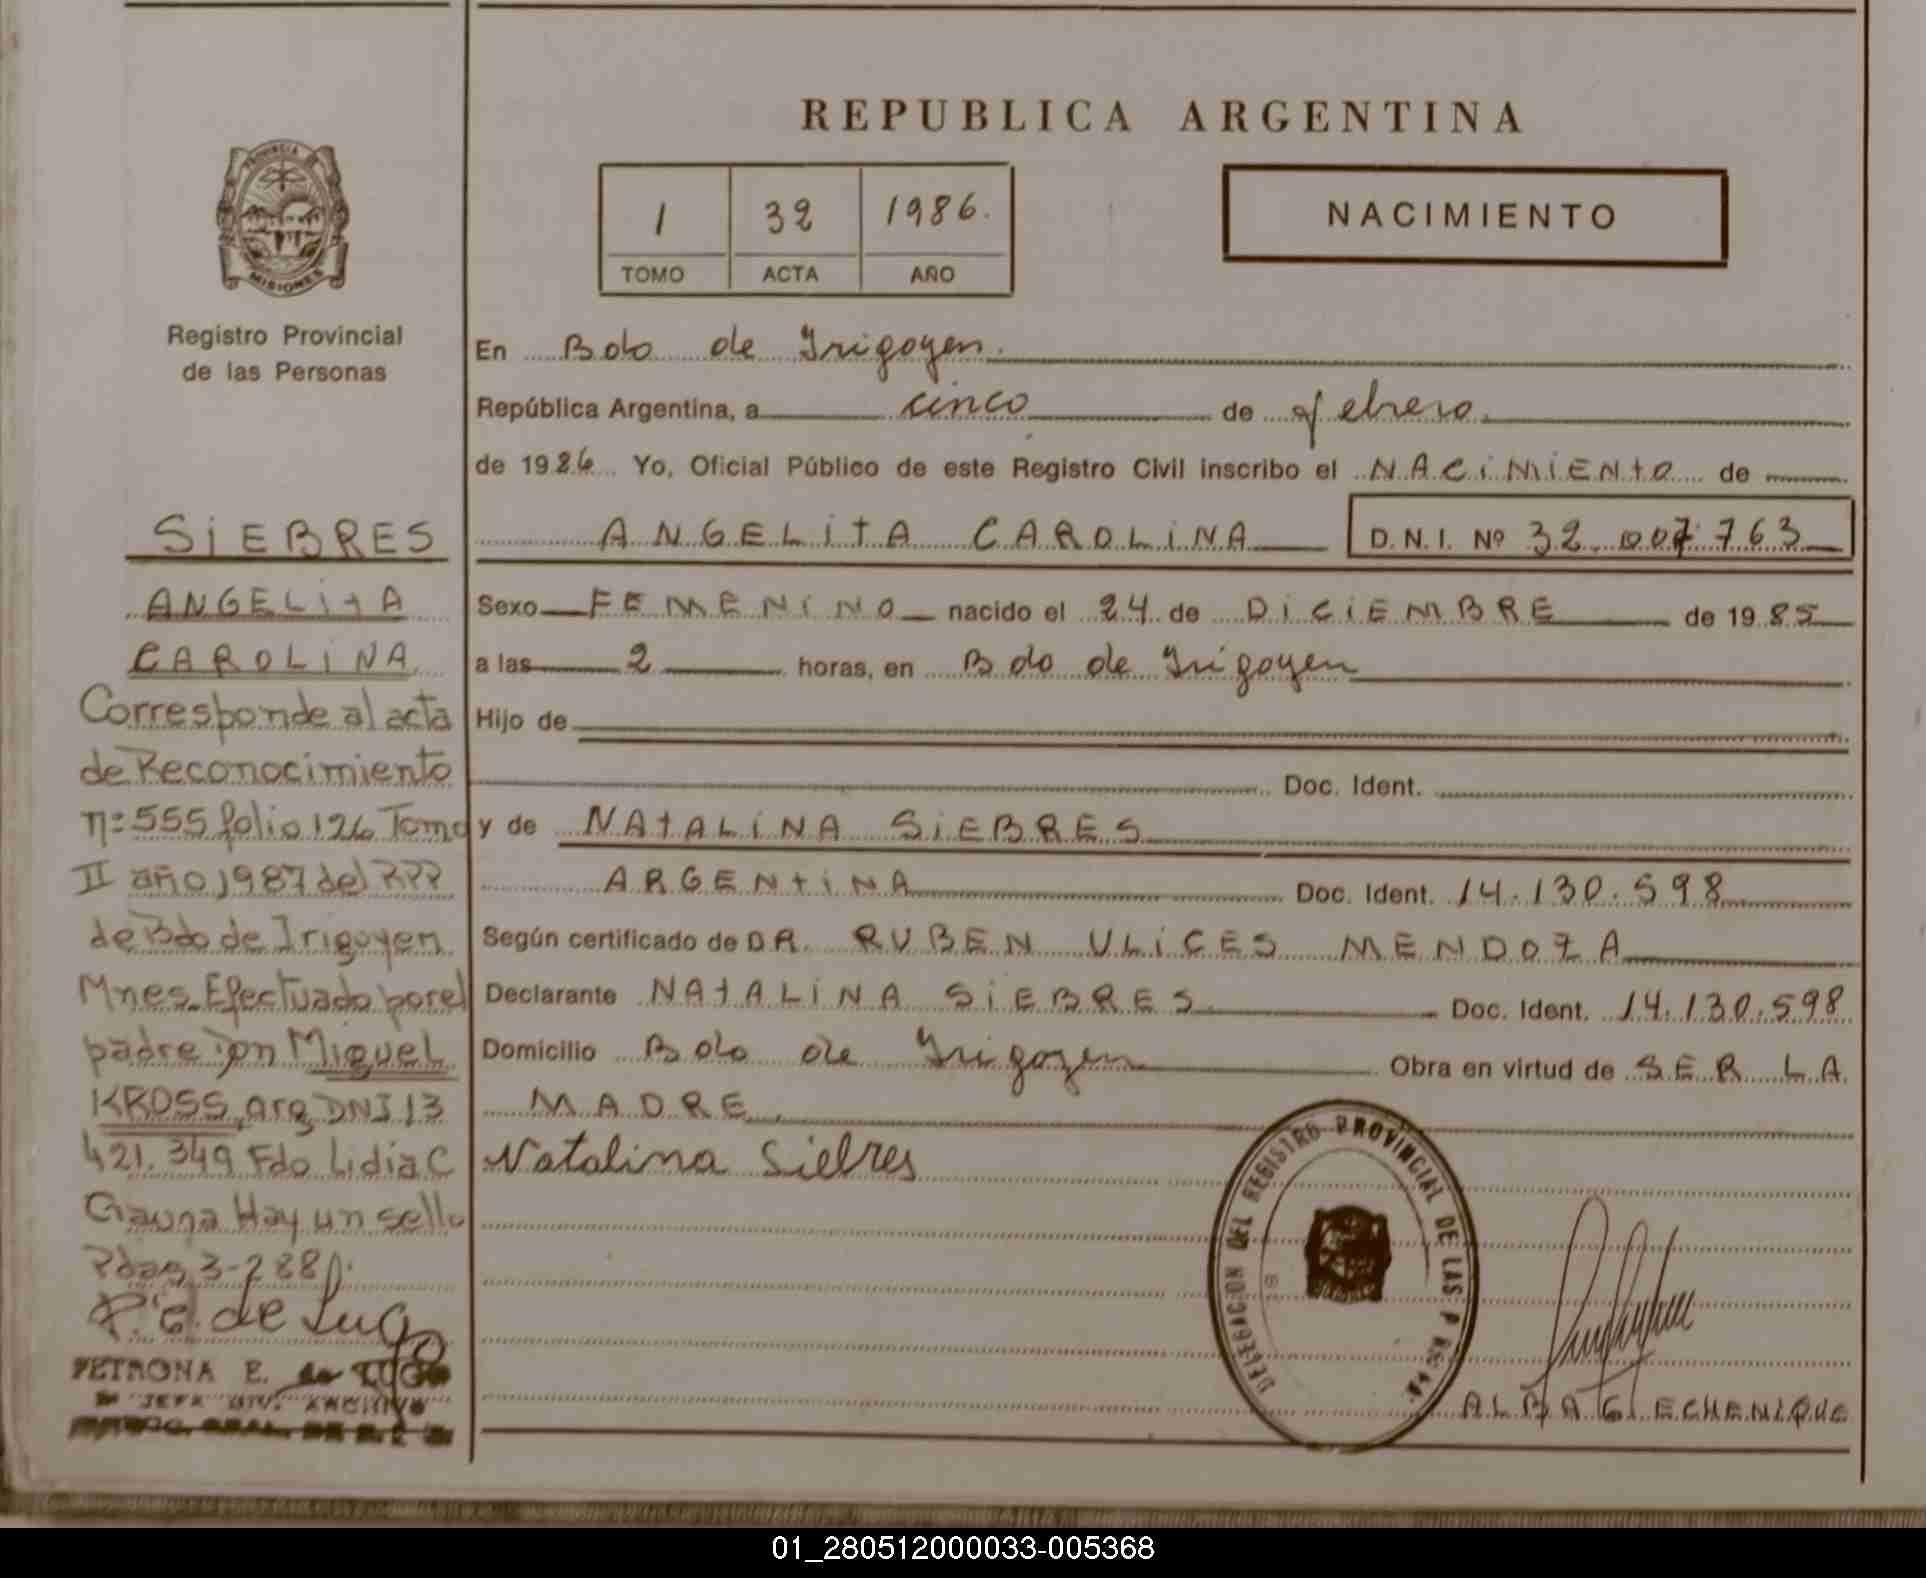 REPUBLICA ARGENTINA
PROVINCIA DE
MISIONES
Registro Provincial
de las Personas
1 32 1986.
TOMO ACTA AÑO
NACIMIENTO
En Bdo de Irigoyen.
República Argentina, a cinco de febrero.
de 1986 Yo, Oficial Público de este Registro Civil inscribo el NACiMiENtO de
ANGELitA CAROLiNA D.N.I. Nº 32.007.763
Sexo FEMENiNO nacido el 24 de DiCiEMBRE de 1985
a las 2 horas, en Bdo de Irigoyen
Hijo de
Doc. Ident.
y de NAtALiNA SiEBRES
ARGENtiNA Doc. Ident. 14.130.598
Según certificado de DR. RUBEN ULiCES MENDOZA
Declarante NAtALiNA SiEBRES Doc. Ident. 14.130.598
Domicilio Bdo de Irigoyen Obra en virtud de SER LA
MADRE.
Natalina Siebres
DELEGACION DEL REGISTRO PROVINCIAL DE LAS P
ALBA G ECHENIQUE
SiEBRES
ANGELitA
CAROLiNA
Corresponde al acta
de Reconocimiento
nº 555 folio 126 Tomo
II año 1987 del RPP
de Bdo de Irigoyen
Mnes. Efectuado por el
padre Don Miguel
KROSS, arg, DNI 13
421.349 Fdo Lidia C
Gauna Hay un sello
Pdas 3-2 88
P. E. de Lugo
PETRONA E. de LUGO
JEFA DIV. ARCHIVO
01_280512000033-005368